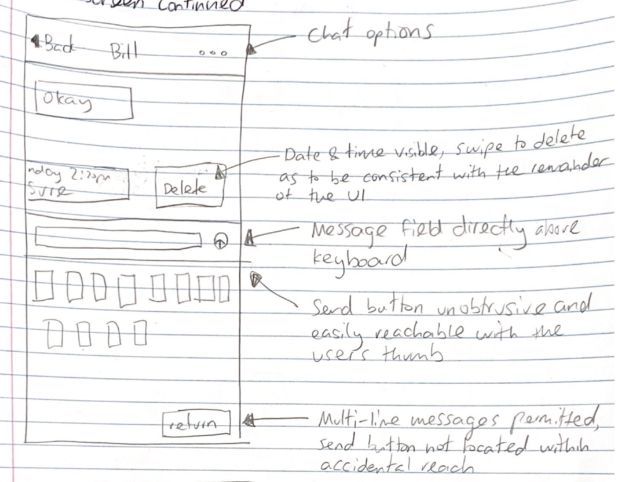 screen continued
Back Bill ooo
Chat options
Okay
Date & time visible, swipe to delete
as to be consistent with the remainder
of the UI
nday 2:20pm
Sure
Delete
Message field directly above
keyboard
Send button unobtrusive and
easily reachable with the
users thumb
return
Multi-line messages permitted,
send button not located within
accidental reach